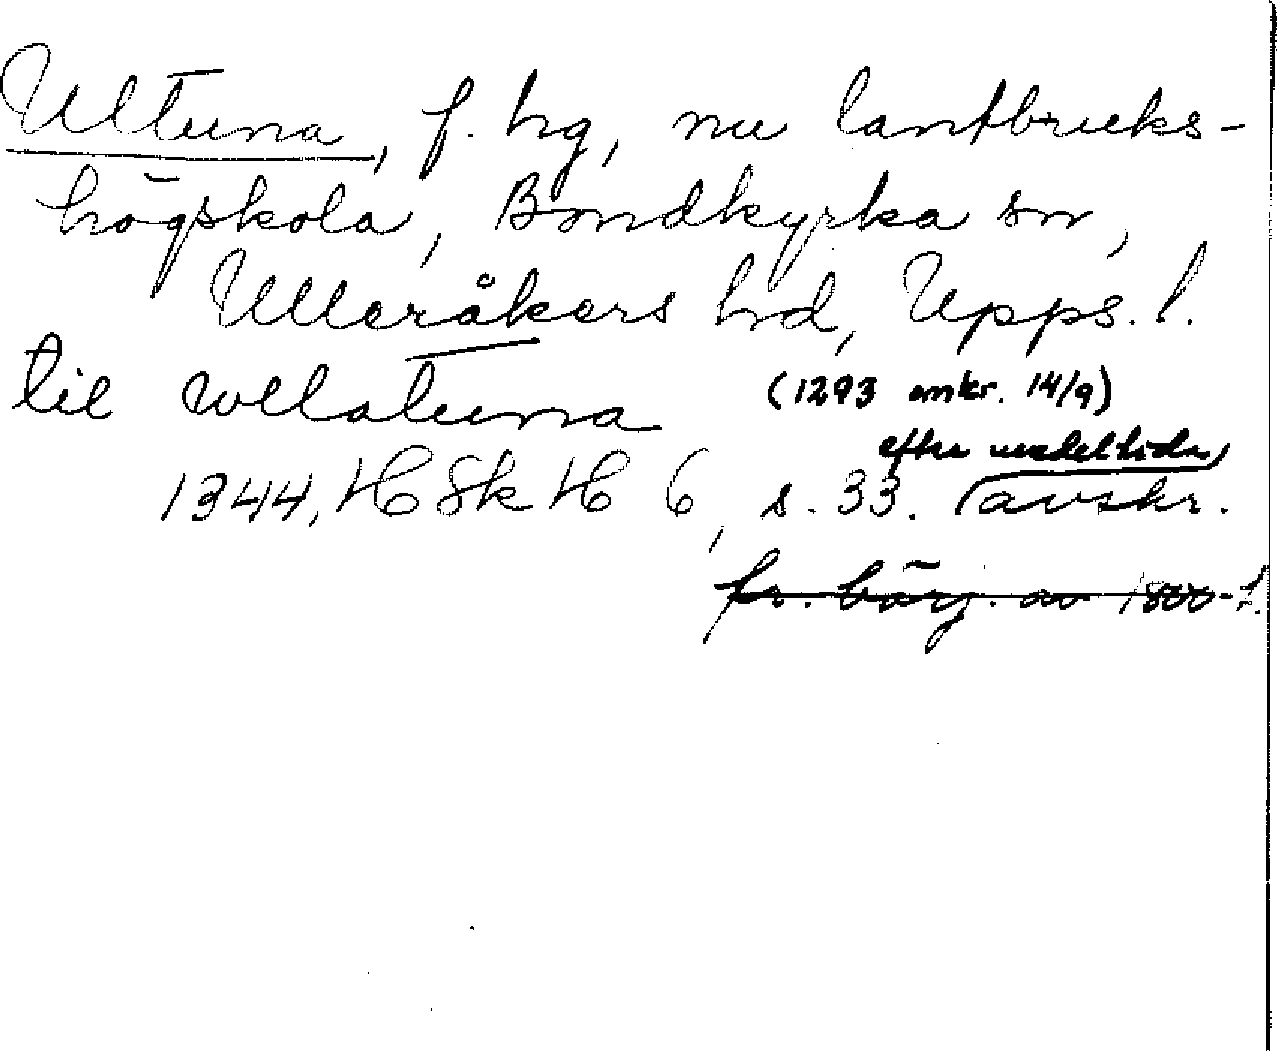 Ultuna, f. hg, nu lantbruks-
högskola, Bondkyrka sn,
Ulleråkers hd, Upps. l.
til wllatuna (1293 omkr. 14/9)
efter medeltida
1344, HSkH 6, s. 33. avskr.
fr. börj. av 1800-t.